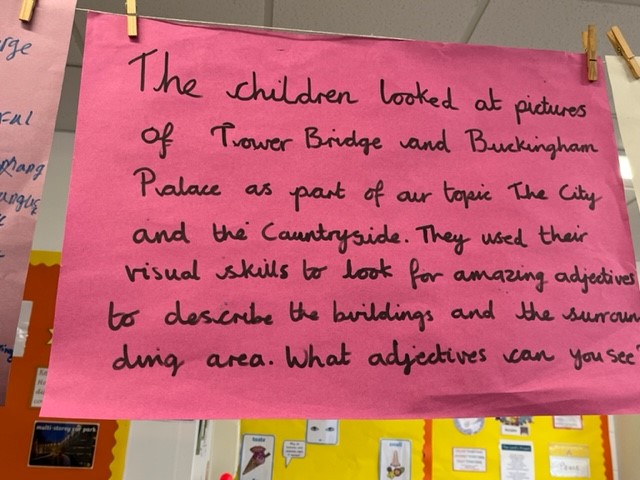 The children looked at pictures
of Tower Bridge and Buckingham
Palace as part of our topic The City
and the Countryside. They used their
visual skills to look for amazing adjectives
to describe the buildings and the surroun
ding area. What adjectives can you see?
multi-storey car park